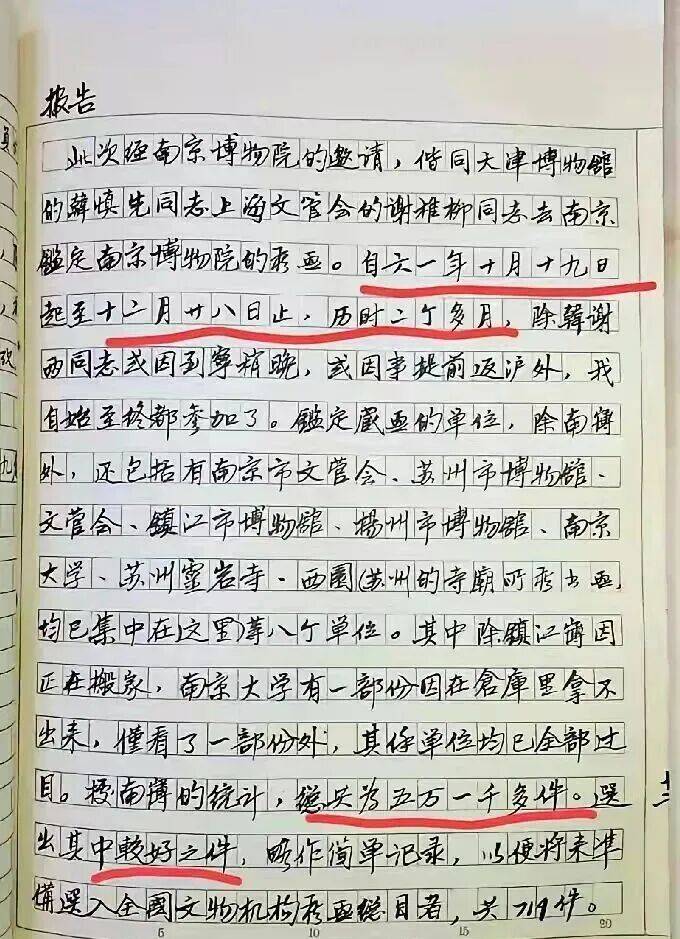 报告
此次经南京博物院的邀请，偕同天津博物館
的韓慎先同志上海文管会的谢稚柳同志去南京
鑑定南京博物院的藏画。自六一年十月十九日
起至十二月廿八日止，历时二个多月，除韓谢
两同志或因到寧稍晚，或因事提前返沪外，我
自始至终都参加了。鑑定藏画的单位，除南博
外，还包括有南京市文管会、苏州市博物館、
文管会、鎮江市博物館、揚州市博物館、南京
大学、苏州靈岩寺·西園(苏州的寺廟所藏书画，
均已集中在这里)等八个单位。其中除鎮江博因
正在搬家，南京大学有一部份因在倉庫里拿不
出来，僅看了一部份外，其馀单位均已全部过
目。据南博的统计，總共为五万一千多件。選
出其中較好之件，略作简单记录，以便将来准
備選入全國文物机构藏画總目者，共719件。
5 10 15 20
九